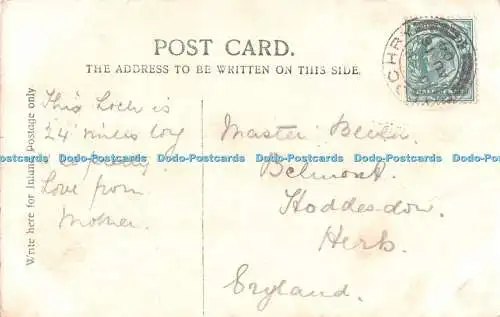 POST CARD.
THE ADDRESS TO BE WRITTEN ON THIS SIDE.
Write here for Inland Postage only
This Loch is
24 miles long
Love from
Mother.
Master
Belmont.
Hoddesdon.
Herts.
England.
Dodo-Postcards Dodo-Postcards Dodo-Postcards Dodo-Postcards Dodo-Postcards